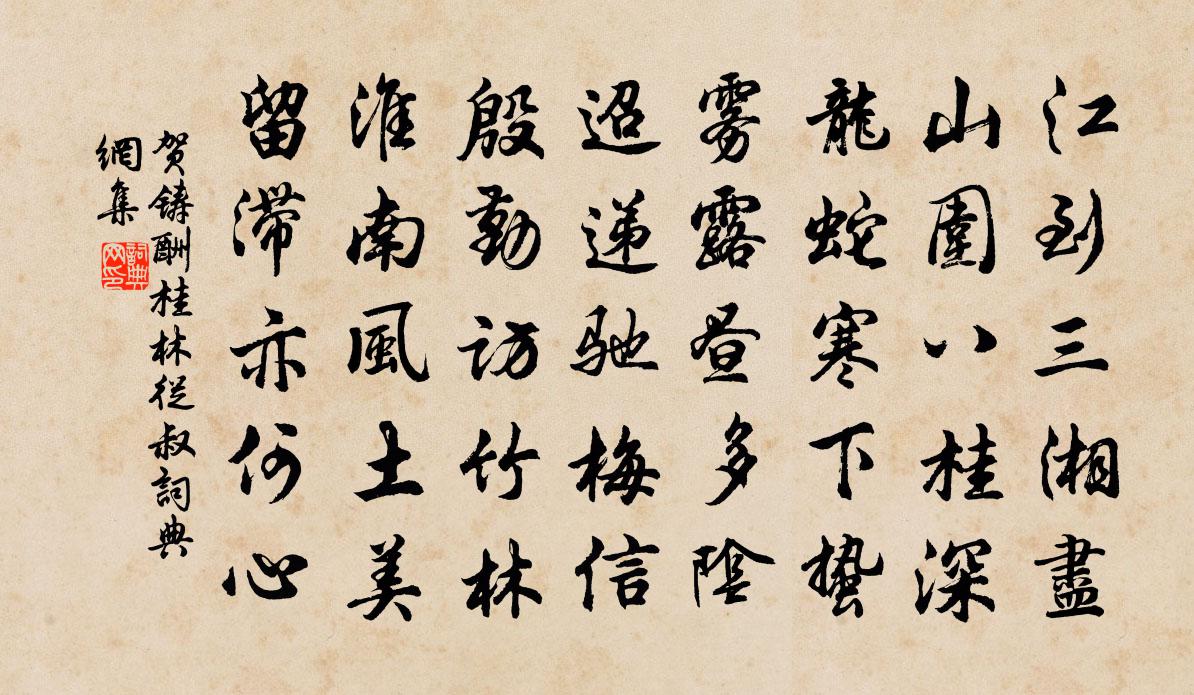 江到三湘盡
山圍八桂深
龍蛇寒下蟄
雾露昼多陰
迢递驰梅信
殷勤访竹林
淮南風土美
留滞亦何心
贺铸酬桂林從叔詞典
網集
詞典
网印